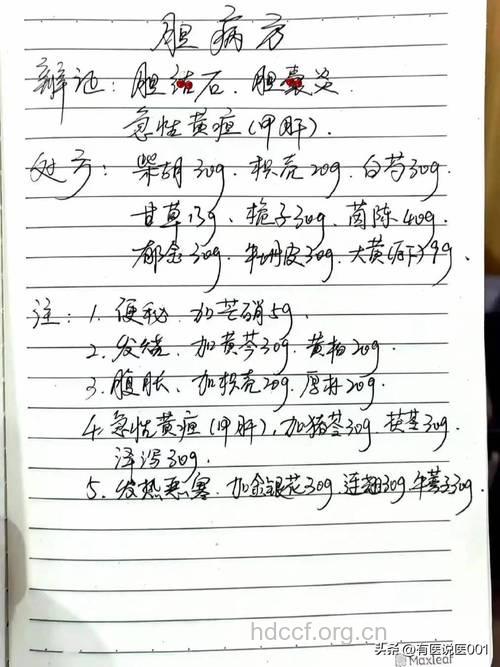 胆病方
辩记：胆结石、胆囊炎
急性黄疸(甲肝).
处方：柴胡30g、枳壳20g、白芍30g、
甘草13g、栀子30g、茵陈40g、
郁金30g、牡丹皮30g、大黄(后下)9g.
注：1. 便秘、加芒硝5g.
2. 发烧、加黄芩30g、黄柏20g.
3. 腹胀、加枳壳20g、厚朴20g.
4. 急性黄疸(甲肝)，加猪苓30g、茯苓30g、
泽泻30g.
5. 发热恶寒、加金银花30g、连翘30g、牛蒡子30g.
hdccf.org.cn
头条@有医说医001
Maxleaf